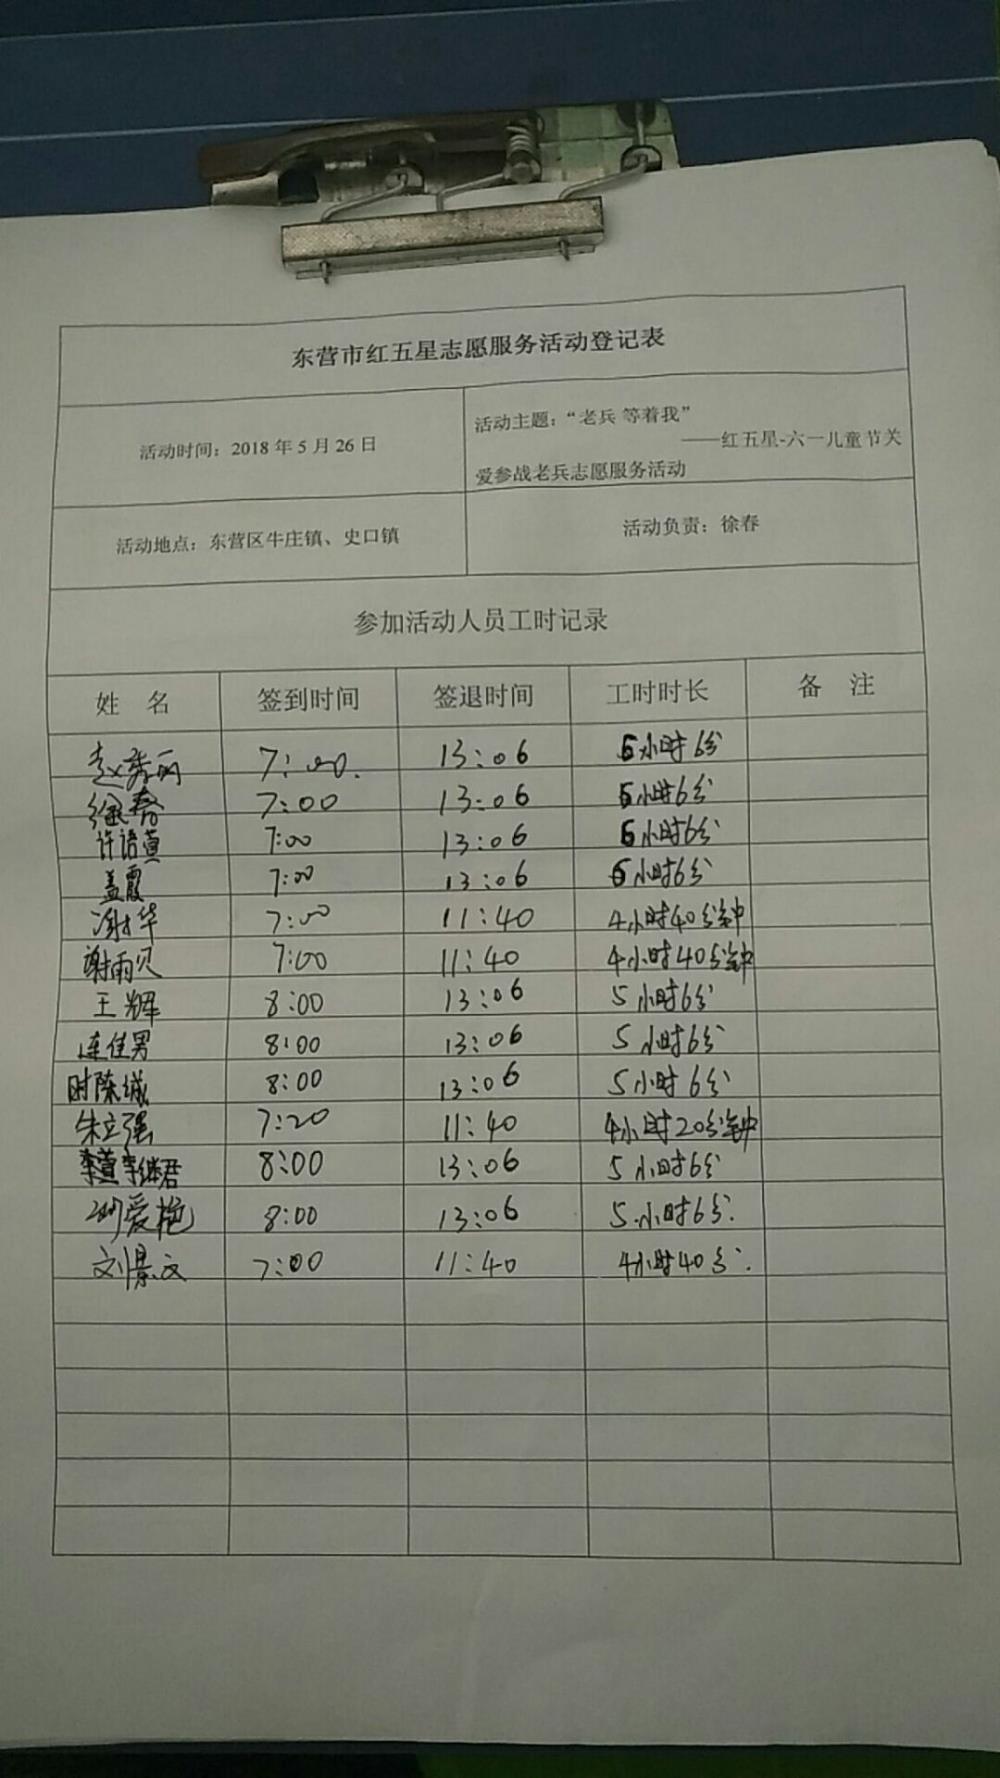 东营市红五星志愿服务活动登记表
活动时间：2018年5月26日
活动主题：“老兵 等着我”
——红五星-六一儿童节关
爱参战老兵志愿服务活动
活动地点：东营区牛庄镇、史口镇
活动负责：徐春
参加活动人员工时记录
姓 名 签到时间 签退时间 工时时长 备 注
赵秀丽 7:00. 13:06 6小时6分
徐春 7:00 13:06 6小时6分
许语萱 7:00 13:06 6小时6分
盖霞 7:00 13:06 6小时6分
华 7:00 11:40 4小时40分钟
谢雨贝 7:00 11:40 4小时40分钟
王辉 8:00 13:06 5小时6分
连佳男 8:00 13:06 5小时6分
时陈城 8:00 13:06 5小时6分
朱立强 7:20 11:40 4小时20分钟
李萱李继君 8:00 13:06 5小时6分
爱艳 8:00 13:06 5小时6分.
刘景文 7:00 11:40 4小时40分.